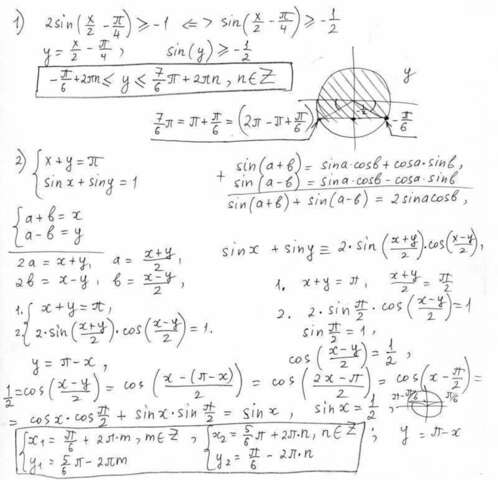 1) 2sin(x/2 - π/4) ≥ -1 <=> sin(x/2 - π/4) ≥ -1/2
y = x/2 - π/4, sin(y) ≥ -1/2
-π/6 + 2πn ≤ y ≤ 7/6 π + 2πn, n∈Z
y
7/6 π = π + π/6 = (2π - π + π/6)
-1/2
-π/6
2) { x + y = π
sin x + sin y = 1
+ sin(a+b) = sina·cosb + cosa·sinb,
sin(a-b) = sina·cosb - cosa·sinb
sin(a+b) + sin(a-b) = 2sinacosb,
{ a + b = x
a - b = y
2a = x+y, a = x+y/2,
2b = x-y, b = x-y/2,
sinx + siny ≡ 2·sin(x+y/2)·cos(x-y/2),
1. x+y = π, x+y/2 = π/2
1. { x + y = π,
2. 2·sin(x+y/2)·cos(x-y/2) = 1.
2. 2·sin π/2 · cos(x-y/2) = 1
sin π/2 = 1,
cos(x-y/2) = 1/2,
y = π-x,
1/2 = cos(x-y/2) = cos(x-(π-x)/2) = cos(2x-π/2) = cos(x-π/2) =
= cosx·cos π/2 + sinx·sin π/2 = sinx, sinx = 1/2,
π-π/6
π/6
{ x1 = π/6 + 2π·m, m∈Z ; { x2 = 5/6 π + 2π·n, n∈Z ; y = π-x
y1 = 5/6 π - 2πm y2 = π/6 - 2π·n